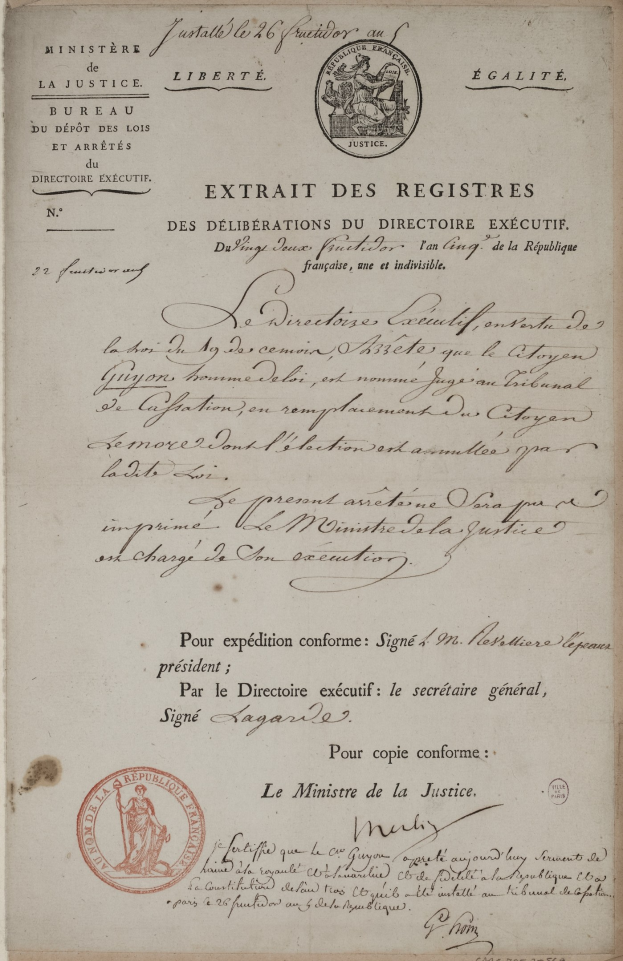 Installé le 26 fructidor an 5
MINISTÈRE
de
LA JUSTICE.
BUREAU
DU DÉPÔT DES LOIS
ET ARRÊTÉS
du
DIRECTOIRE EXÉCUTIF.
N.º
22 fructidor an 5
LIBERTÉ.
RÉPUBLIQUE FRANÇAISE.
JUSTICE.
ÉGALITÉ.
EXTRAIT DES REGISTRES
DES DÉLIBÉRATIONS DU DIRECTOIRE EXÉCUTIF.
Du Vingt deux fructidor l'an Cinq.e de la République
française, une et indivisible.
Le Directoire Exécutif, en vertu de
la Loi du 19 de ce mois, Arrête que le Citoyen
Guyon homme de loi, est nommé Juge au Tribunal
de Cassation, en remplacement du Citoyen
Lemore dont l'élection est annullée par
la dite Loi.
Le présent arrêté ne Sera pas
imprimé Le Ministre de la Justice
est chargé de Son exécution.
Pour expédition conforme : Signé L. M. Revelliere lépeaux
président ;
Par le Directoire exécutif : le secrétaire général,
Signé Lagarde.
Pour copie conforme :
Le Ministre de la Justice.
VILLE
DE
PARIS
AU NOM DE LA RÉPUBLIQUE FRANÇAISE.
Merlin
je Certiffie que le Cen Guyon a preté aujourd'huy Serment de
haine à la royauté et à l'anarchie et de fidelité à la Republique et a
la Constitution de l'an trois et qu'il a été installé au tribunal de Cassation
a paris ce 26 fructidor an 5 de la Republique.